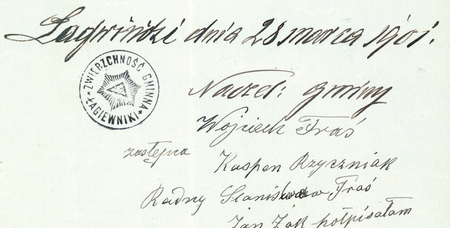 Łagiewniki dnia 28 marca 1901.
ZWIERZCHNOŚĆ GMINNA
* ŁAGIEWNIKI *
Naczel: gminy
Wojciech Fraś
zastępca Kasper Rzyczniak
Radny Stanisław Fraś
Jan Żak półpisałam